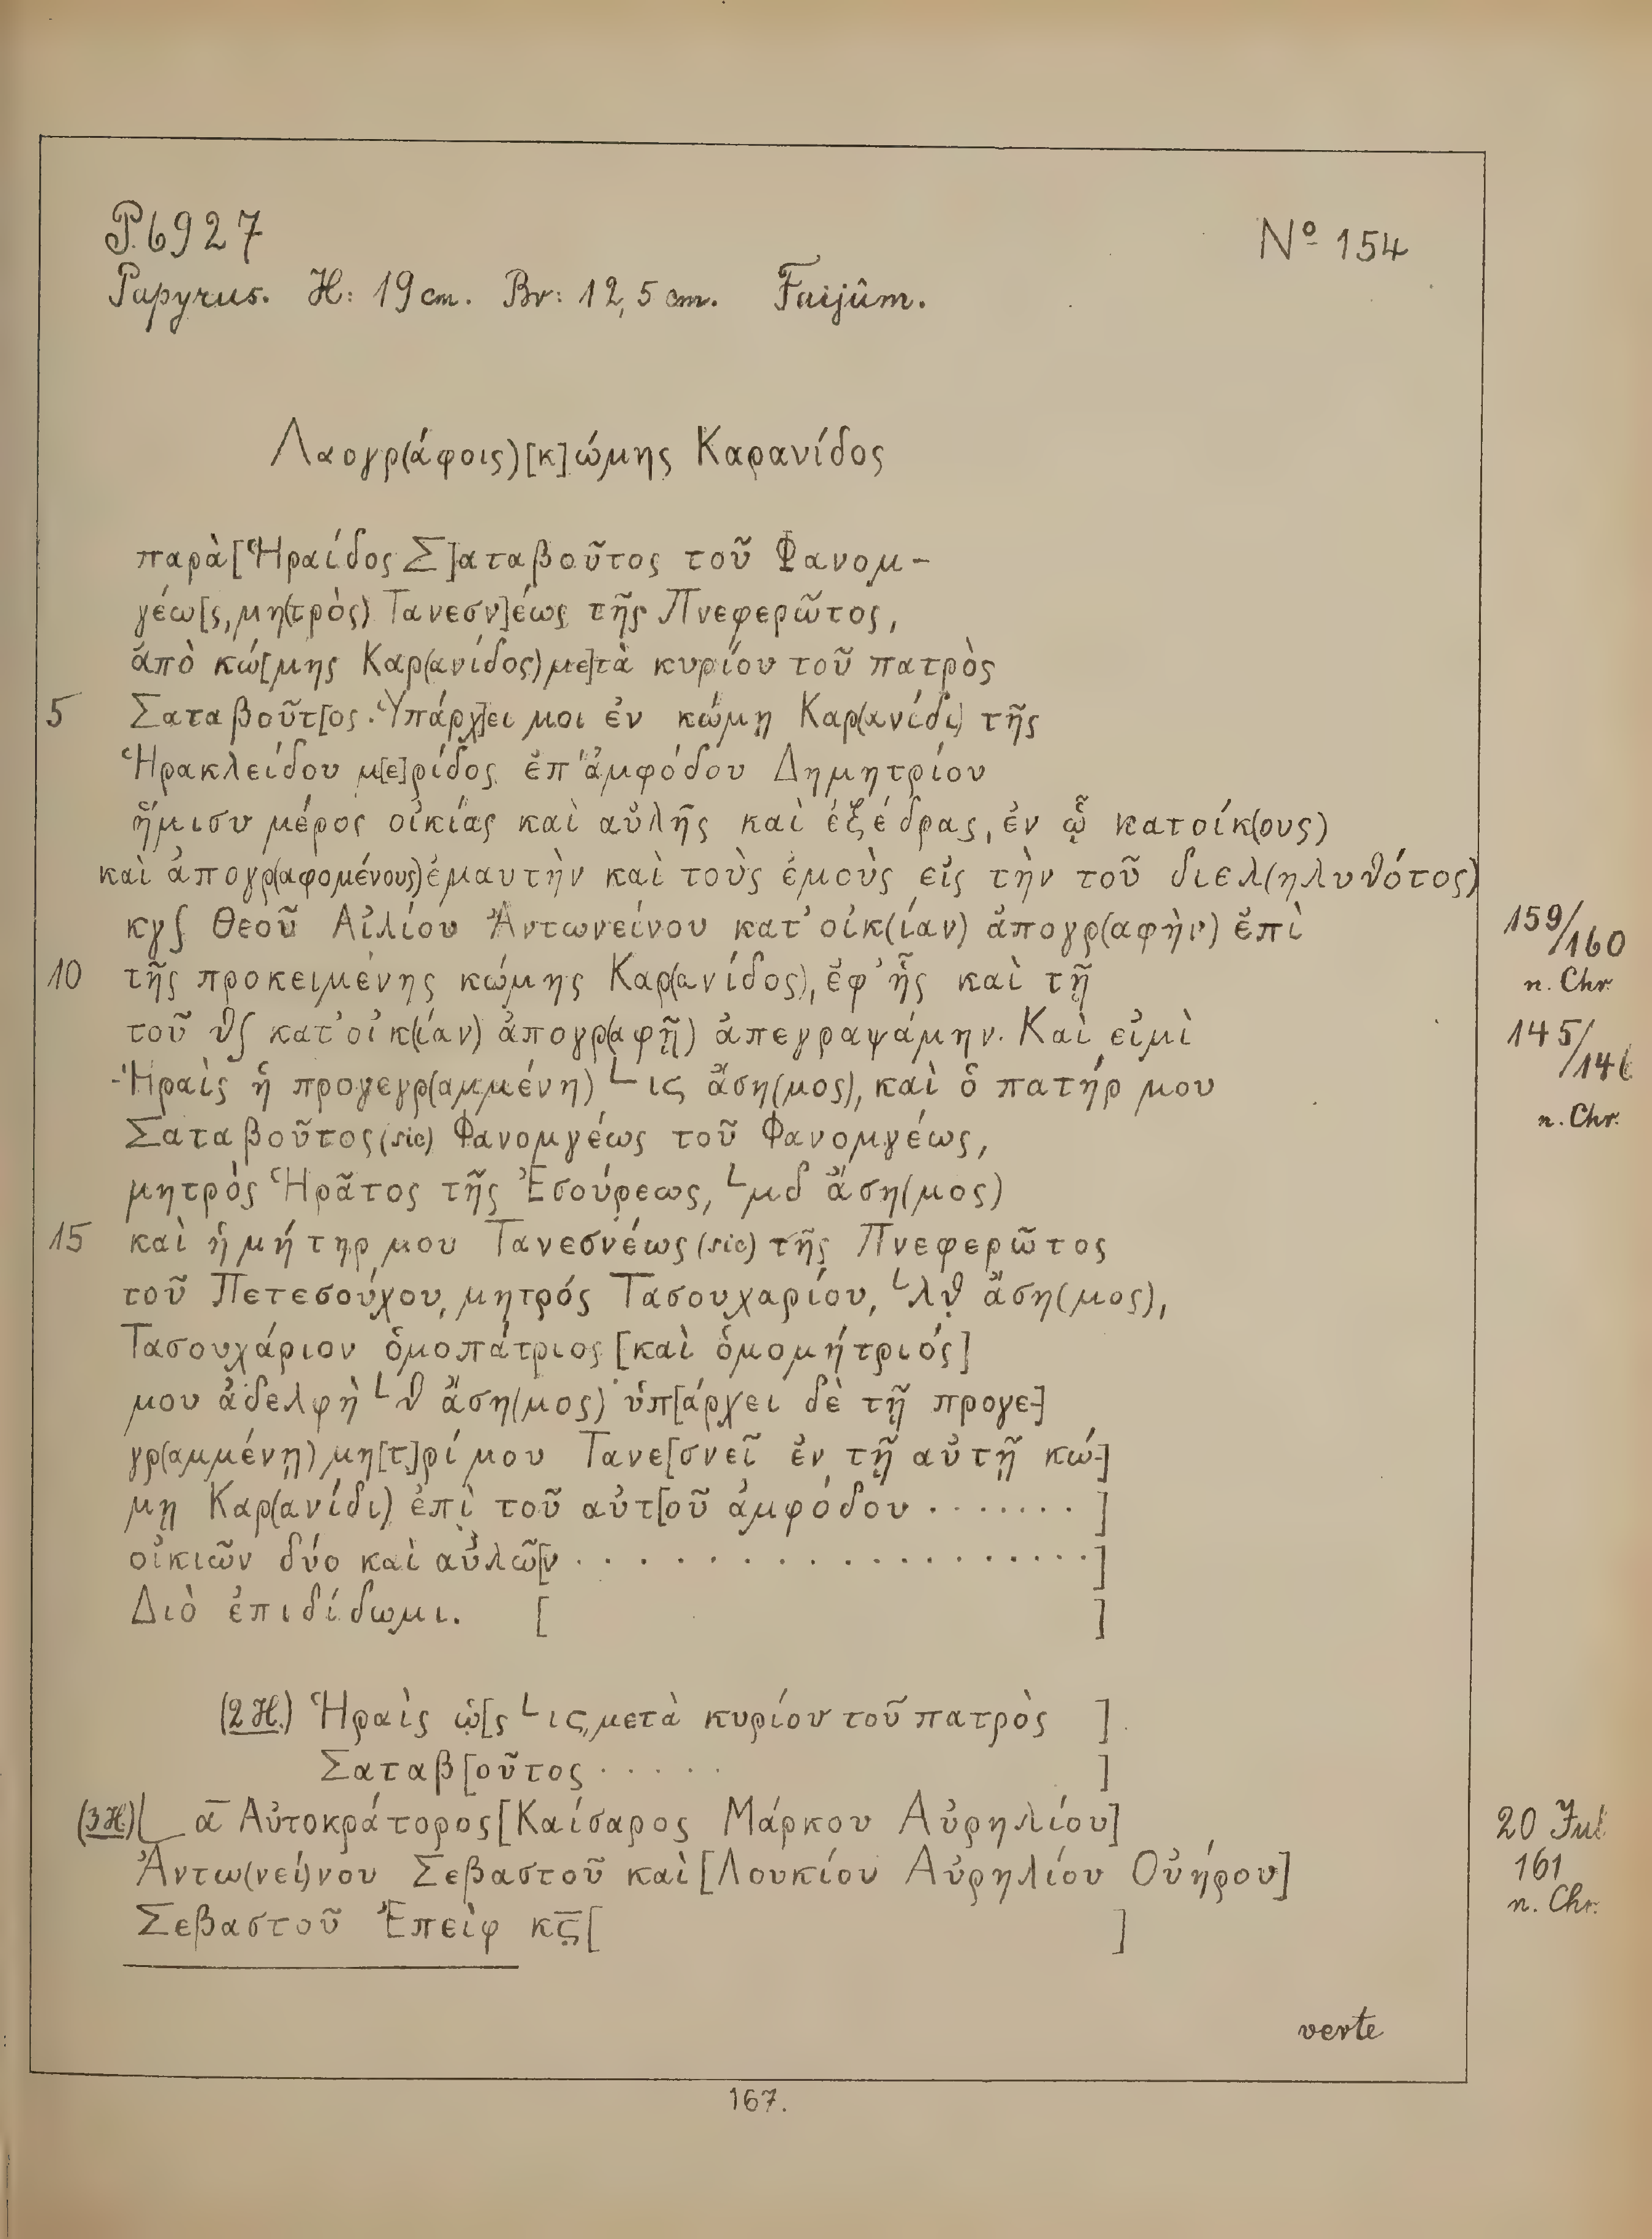 P.6927
Nº 154
Papyrus. H: 19 cm. Br: 12,5 cm. Faijûm.
Λαογρ(άφοις) [κ]ώμης Καρανίδος
παρὰ [Ἡραίδος Σ]αταβοῦτος τοῦ Φανομ-
γέω[ς, μη(τρὸς) Τανεσν]έως τῆς Πνεφερῶτος,
ἀπὸ κώ[μης Καρ(ανίδος) με]τὰ κυρίου τοῦ πατρὸς
5 Σαταβοῦτ[ος. Ὑπάρχ]ει μοι ἐν κώμῃ Καρ(ανίδι) τῆς
Ἡρακλείδου μ[ε]ρίδος ἐπ' ἀμφόδου Δημητρίου
ἥμισυ μέρος οἰκίας καὶ αὐλῆς καὶ ἐξέδρας, ἐν ᾧ κατοίκ(ους)
καὶ ἀπογρ(αφομένους) ἐμαυτὴν καὶ τοὺς ἐμοὺς εἰς τὴν τοῦ διελ(ηλυθότος)
κγʃ Θεοῦ Αἰλίου Ἀντωνείνου κατ' οἰκ(ίαν) ἀπογρ(αφὴν) ἐπὶ
159/160 n. Chr.
10 τῆς προκειμένης κώμης Καρ(ανίδος), ἐφ' ἧς καὶ τῇ
τοῦ θʃ κατ' οἰκ(ίαν) ἀπογρ(αφῇ) ἀπεγραψάμην. Καὶ εἰμὶ
145/146 n. Chr.
Ἡραὶς ἡ προγεγρ(αμμένη) └ ις ἄση(μος), καὶ ὁ πατήρ μου
Σαταβοῦτος (sic) Φανομγέως τοῦ Φανομγέως,
μητρὸς Ἡρᾶτος τῆς Ἐσούρεως, └ μδ ἄση(μος)
15 καὶ ἡ μήτηρ μου Τανεσνέως (sic) τῆς Πνεφερῶτος
τοῦ Πετεσούχου, μητρός Τασουχαρίου, └ λθ ἄση(μος),
Τασουχάριον ὁμοπάτριος [καὶ ὁμομήτριός]
μου ἀδελφὴ └ θ ἄση(μος) ὑπ[άρχει δὲ τῇ προγε-]
γρ(αμμένῃ) μη[τ]ρί μου Τανε[σνεῖ ἐν τῇ αὐτῇ κώ-]
μῃ Καρ(ανίδι) ἐπὶ τοῦ αὐτ[οῦ ἀμφόδου . . . . . . . ]
οἰκιῶν δύο καὶ αὐλῶ[ν . . . . . . . . . . . . . . . . ]
Διὸ ἐπιδίδωμι. [ ]
(2 H.) Ἡραὶς ὡ[ς └ ις, μετὰ κυρίου τοῦ πατρὸς ]
Σαταβ[οῦτος . . . . . ]
(3 H.) └ ᾱ Αὐτοκράτορος [Καίσαρος Μάρκου Αὐρηλίου]
Ἀντω(νεί)νου Σεβαστοῦ καὶ [Λουκίου Αὐρηλίου Οὐήρου]
Σεβαστοῦ Ἐπεὶφ κς̄ [ ]
20 Jul. 161 n. Chr.
verte
167.